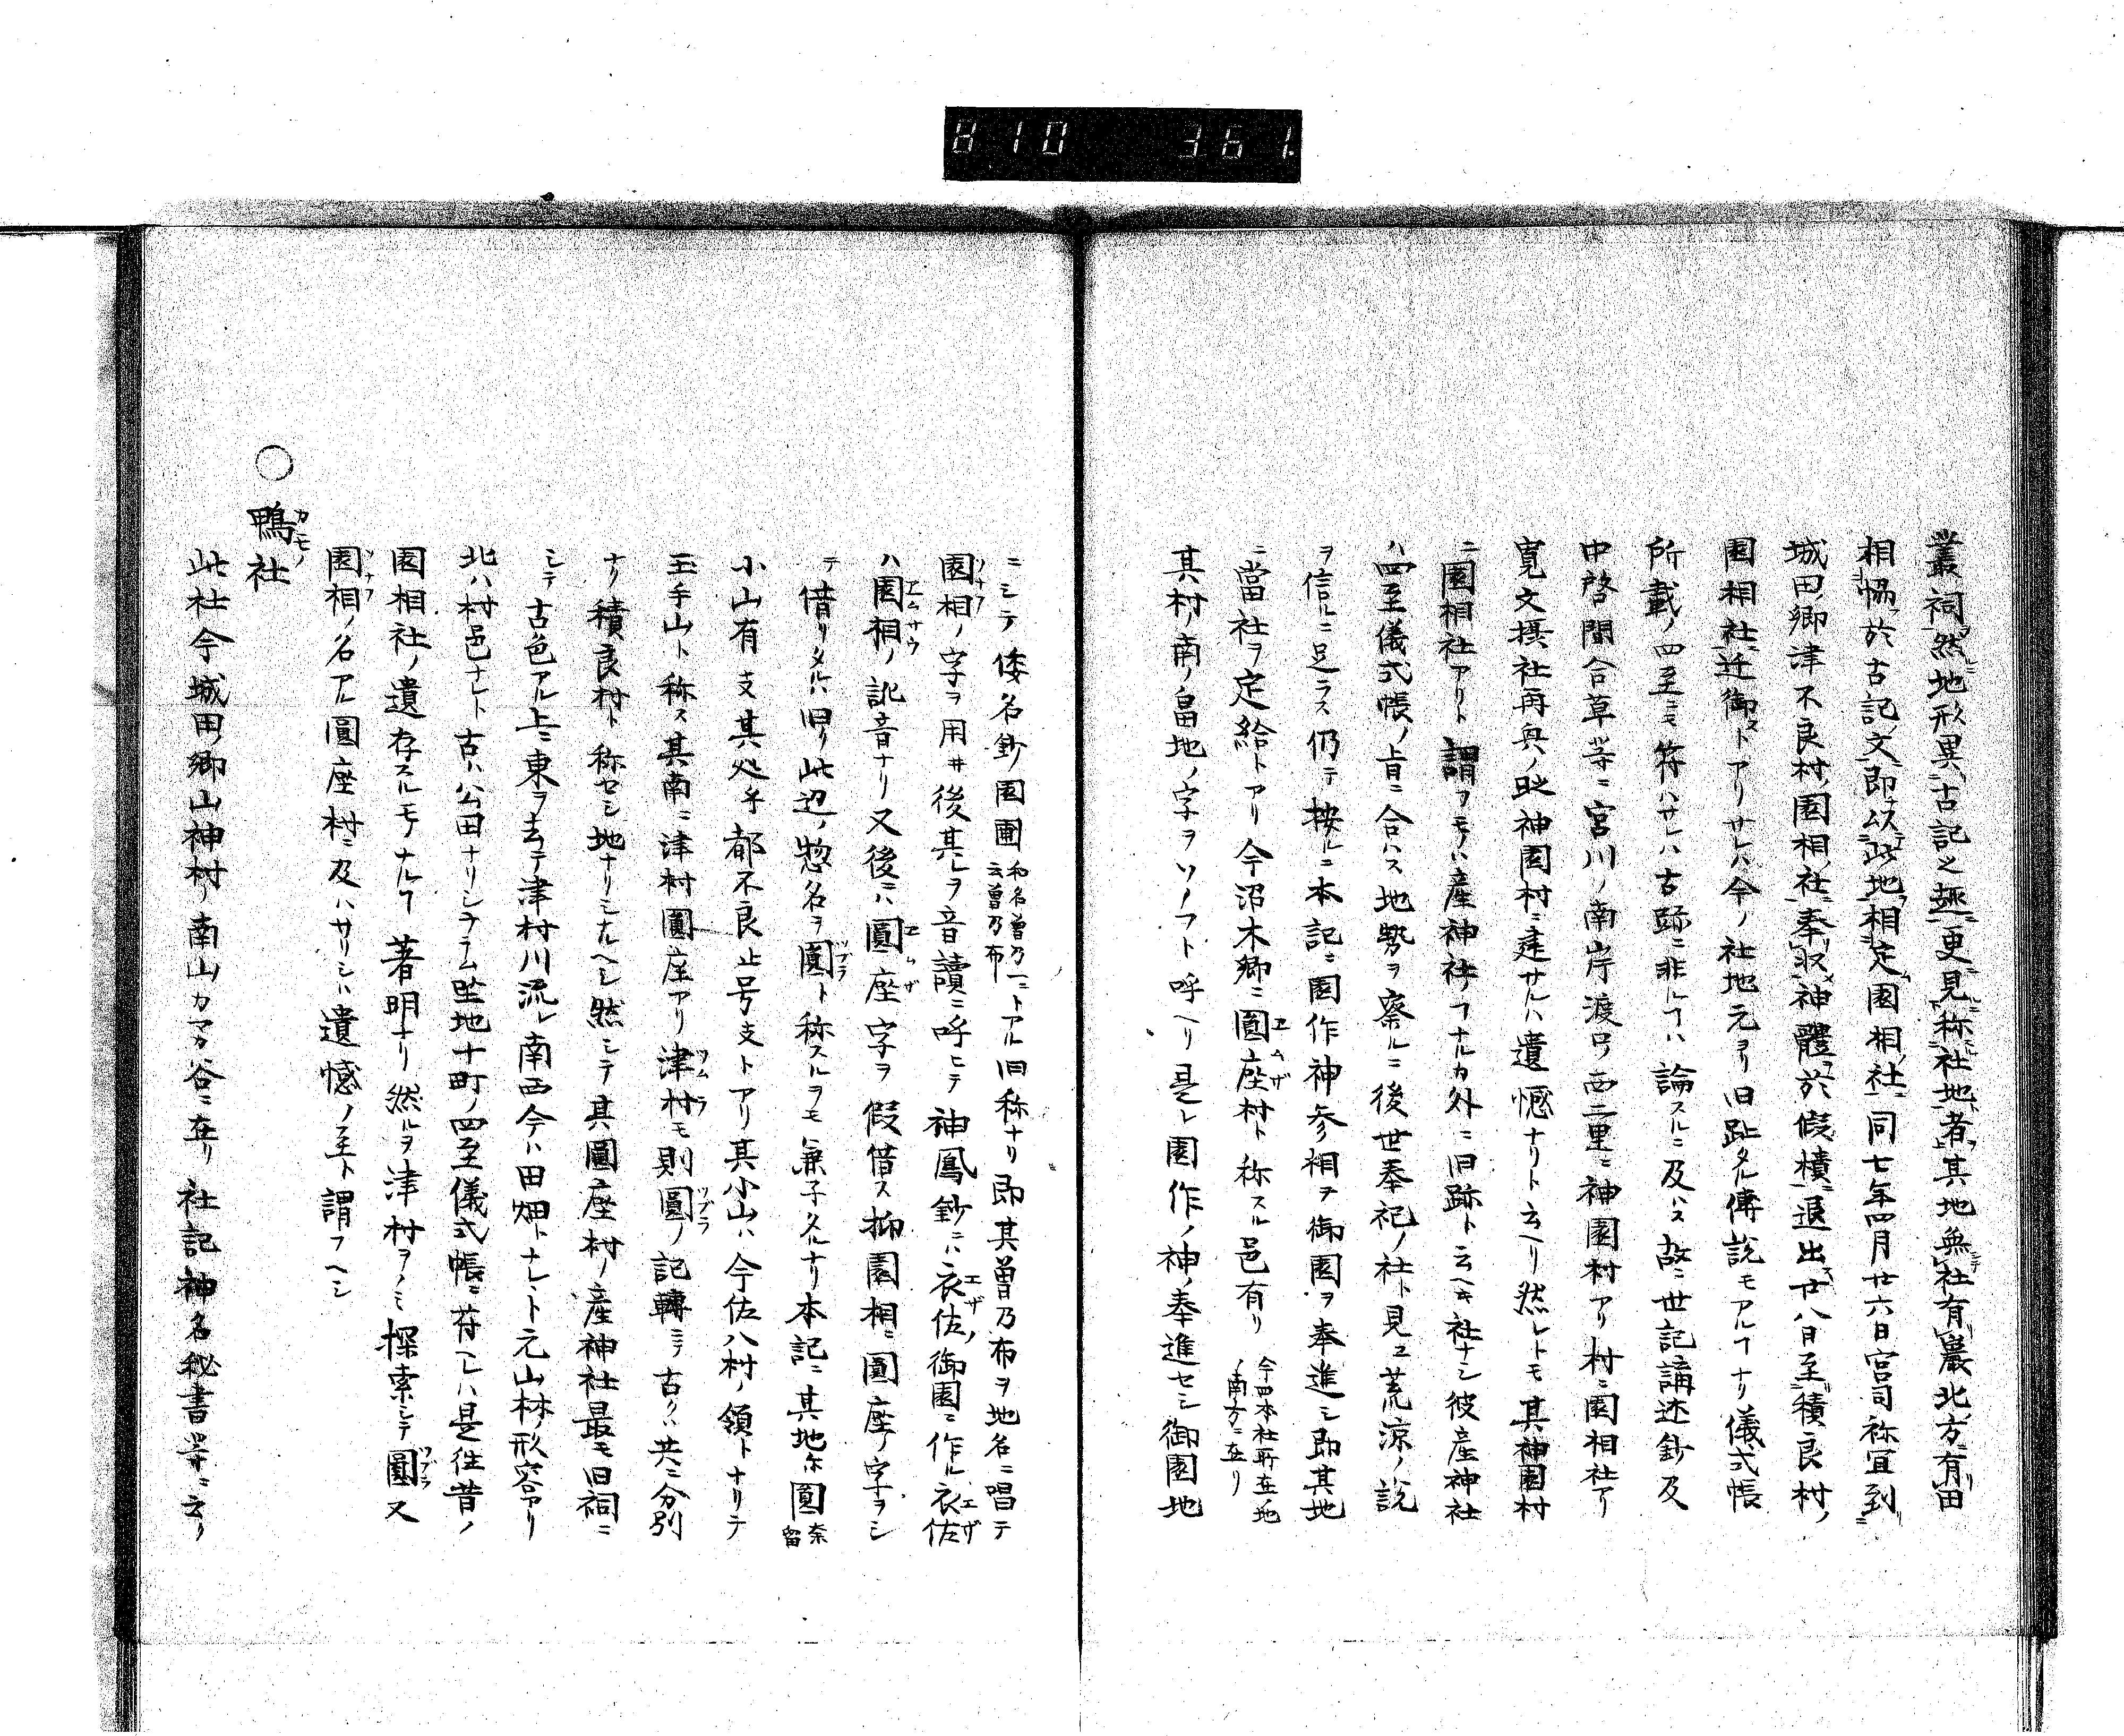 810 361
叢祠然地形異古記之趣更見称社地者其地無社有巖北方有田
相協於古記文即以此地相定園相社同七年四月廿六日宮司祢宜到
城田郷津不良村園相社奉収神體於假樻退出廿八日至積良村ノ
園相社迁御ストアリサレハ今ノ社地元ヨリ旧趾タル傳説モアルヿナリ儀式帳
所載ノ四至ニモ符ハサレハ古跡ニ非レヿハ論スルニ及ハス故ニ世記講述鈔及
中啓間合草等ニ宮川ノ南岸渡口ノ西二里ニ神園村アリ村ニ園相社アリ
寛文摂社再興ノ時神園村ニ建サルハ遺憾ナリト云ヘリ然レトモ其神園村
ニ園相社アリト謂フモノハ産神社ノヿナルカ外ニ旧跡ト云ヘキ社ナシ彼産神社
ハ四至儀式帳ノ旨ニ合ハス地勢ヲ察ルニ後世奉祀ノ社ト見ユ荒涼ノ説
ヲ信ルニ足ラス仍テ按ルニ本記ニ園作神参相テ御園ヲ奉進シ即其地
ニ當社ヲ定給トアリ今沼木郷ニ圓座村ト称スル邑有リ今四本社所在地ノ南方ニ在リ
其村ノ南ノ畠地ノ字ヲソノフト呼ヘリ是レ園作ノ神ノ奉進セシ御園地
ニシテ倭名鈔園圃和名曽乃一ニ云曽乃布トアル旧称ナリ即其曽乃布ヲ地名ニ唱テ
園相ノ字ヲ用井後其レヲ音讀ニ呼ヒテ神鳳鈔ニハ衣佐ノ御園ニ作ル衣佐
ハ園相ノ訛音ナリ又後ニハ圓座字ヲ假借ス抑園相ニ圓座ノ字ヲシ
テ借リタルハ旧ノ此辺ノ惣名ヲ圓ト称スルヲモ兼子タルナリ本記ニ其地尓圓奈留
小山有支其処乎都不良止号支トアリ其小山ハ今佐八村ノ領トナリテ
玉手山ト称ス其南ニ津村圓座アリ津村モ則圓ノ記轉ニテ古クハ共ニ分別
ナク積良村ト称セシ地ナリシナルヘシ然シテ其圓座村ノ産神社最モ旧祠ニ
シテ古色アル上ニ東ヲ去テ津村川流レ南西今ハ田畑トナレト元山林ノ形容アリ
北ハ村邑ナレト古ハ公田ナリシナラム坐地十町ノ四至儀式帳ニ符ヘレハ是往昔ノ
園相社ノ遺存スルモノナルヿ著明ナリ然ルヲ津村ヲノミ探索シテ圓又
園相ノ名アル圓座村ニ及ハサリシハ遺憾ノ至ト謂フヘシ
○鴨社
此社今城田郷山神村ノ南山カマカ谷ニ在リ社記神名秘書等ニ云リ